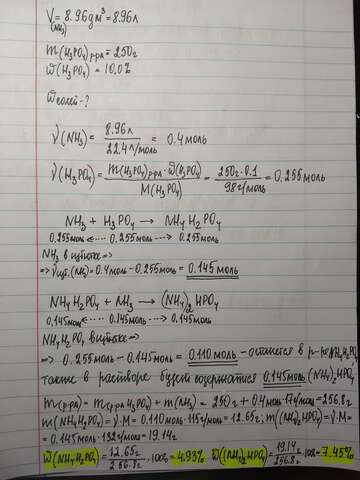 V = 8.96 дм³ = 8.96 л
(NH3)
m(H3PO4)р-ра = 250г
ω(H3PO4) = 10.0%
ω солей - ?
ν(NH3) = 8.96л / 22.4 л/моль = 0.4 моль
ν(H3PO4) = m(H3PO4)р-ра · ω(H3PO4) / M(H3PO4) = 250г · 0.1 / 98г/моль = 0.255 моль
NH3 + H3PO4 → NH4H2PO4
0.255моль ← 0.255моль → 0.255моль
NH3 в избытке =>
=> ν изб.(NH3) = 0.4моль - 0.255моль = 0.145 моль
NH4H2PO4 + NH3 → (NH4)2HPO4
0.145моль ← 0.145моль → 0.145моль
NH4H2PO4 в избытке =>
=> 0.255моль - 0.145моль = 0.110 моль - останется в р-ре NH4H2PO4
также в растворе будет содержатся 0.145моль (NH4)2HPO4
m(р-ра) = m(р-ра H3PO4) + m(NH3) = 250г + 0.4моль · 17г/моль = 256.8г
m(NH4H2PO4) = ν·M = 0.110моль · 115г/моль = 12.65г; m((NH4)2HPO4) = ν·M =
= 0.145моль · 132г/моль = 19.14г
ω(NH4H2PO4) = 12.65г / 256.8г · 100% = 4.93% ω((NH4)2HPO4) = 19.14 / 256.8г · 100% = 7.45%